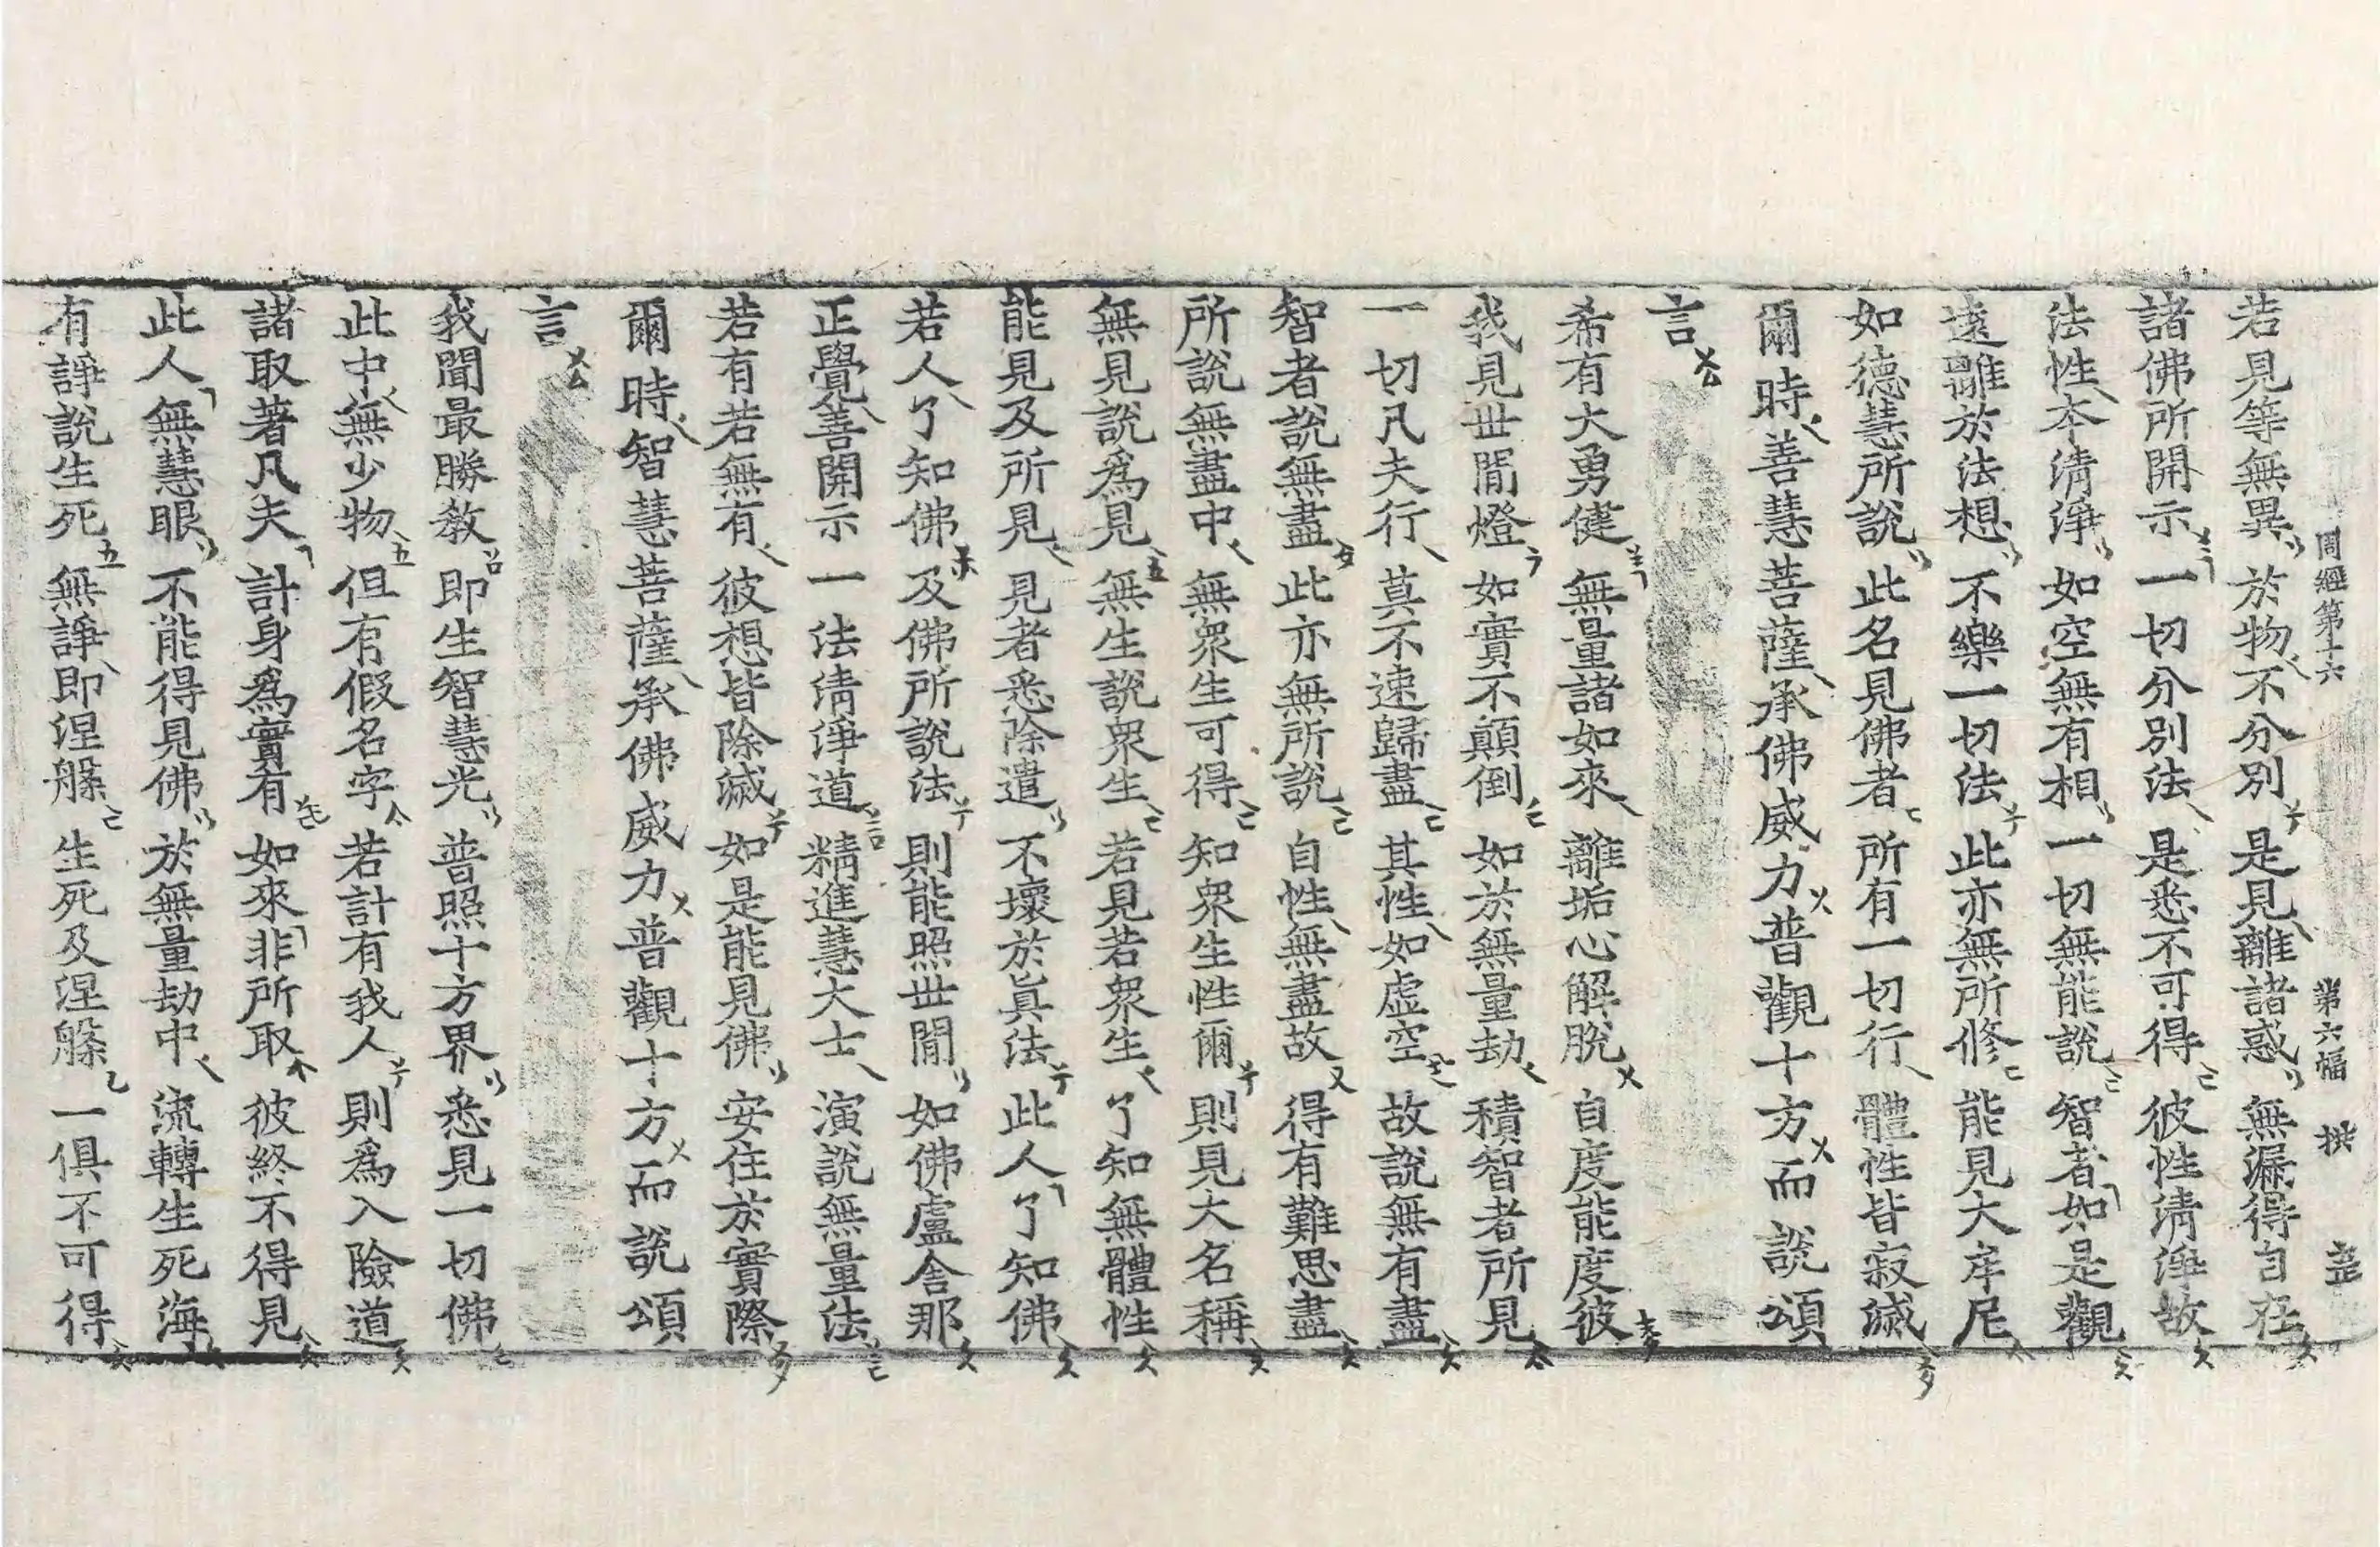 周經第十六 第六幅 拱
若見等無異 於物不分別 是見離諸惑 無漏得自在
諸佛所開示 一切分別法 是悉不可得 彼性清淨故
法性本清淨 如空無有相 一切無能說 智者如是觀
遠離於法想 不樂一切法 此亦無所修 能見大牟尼
如德慧所說 此名見佛者 所有一切行 體性皆寂滅
爾時善慧菩薩承佛威力普觀十方而說頌
言
希有大勇健 無量諸如來 離垢心解脫 自度能度彼
我見世閒燈 如實不顛倒 如於無量劫 積智者所見
一切凡夫行 莫不速歸盡 其性如虛空 故說無有盡
智者說無盡 此亦無所說 自性無盡故 得有難思盡
所說無盡中 無眾生可得 知眾生性爾 則見大名稱
無見說為見 無生說眾生 若見若眾生 了知無體性
能見及所見 見者悉除遣 不壞於真法 此人了知佛
若人了知佛 及佛所說法 則能照世閒 如佛盧舍那
正覺善開示 一法清淨道 精進慧大士 演說無量法
若有若無有 彼想皆除滅 如是能見佛 安住於實際
爾時智慧菩薩承佛威力普觀十方而說頌
言
我聞最勝教 即生智慧光 普照十方界 悉見一切佛
此中無少物 但有假名字 若計有我人 則為入險道
諸取著凡夫 計身為實有 如來非所取 彼終不得見
此人無慧眼 不能得見佛 於無量劫中 流轉生死海
有諍說生死 無諍即涅槃 生死及涅槃 一俱不可得